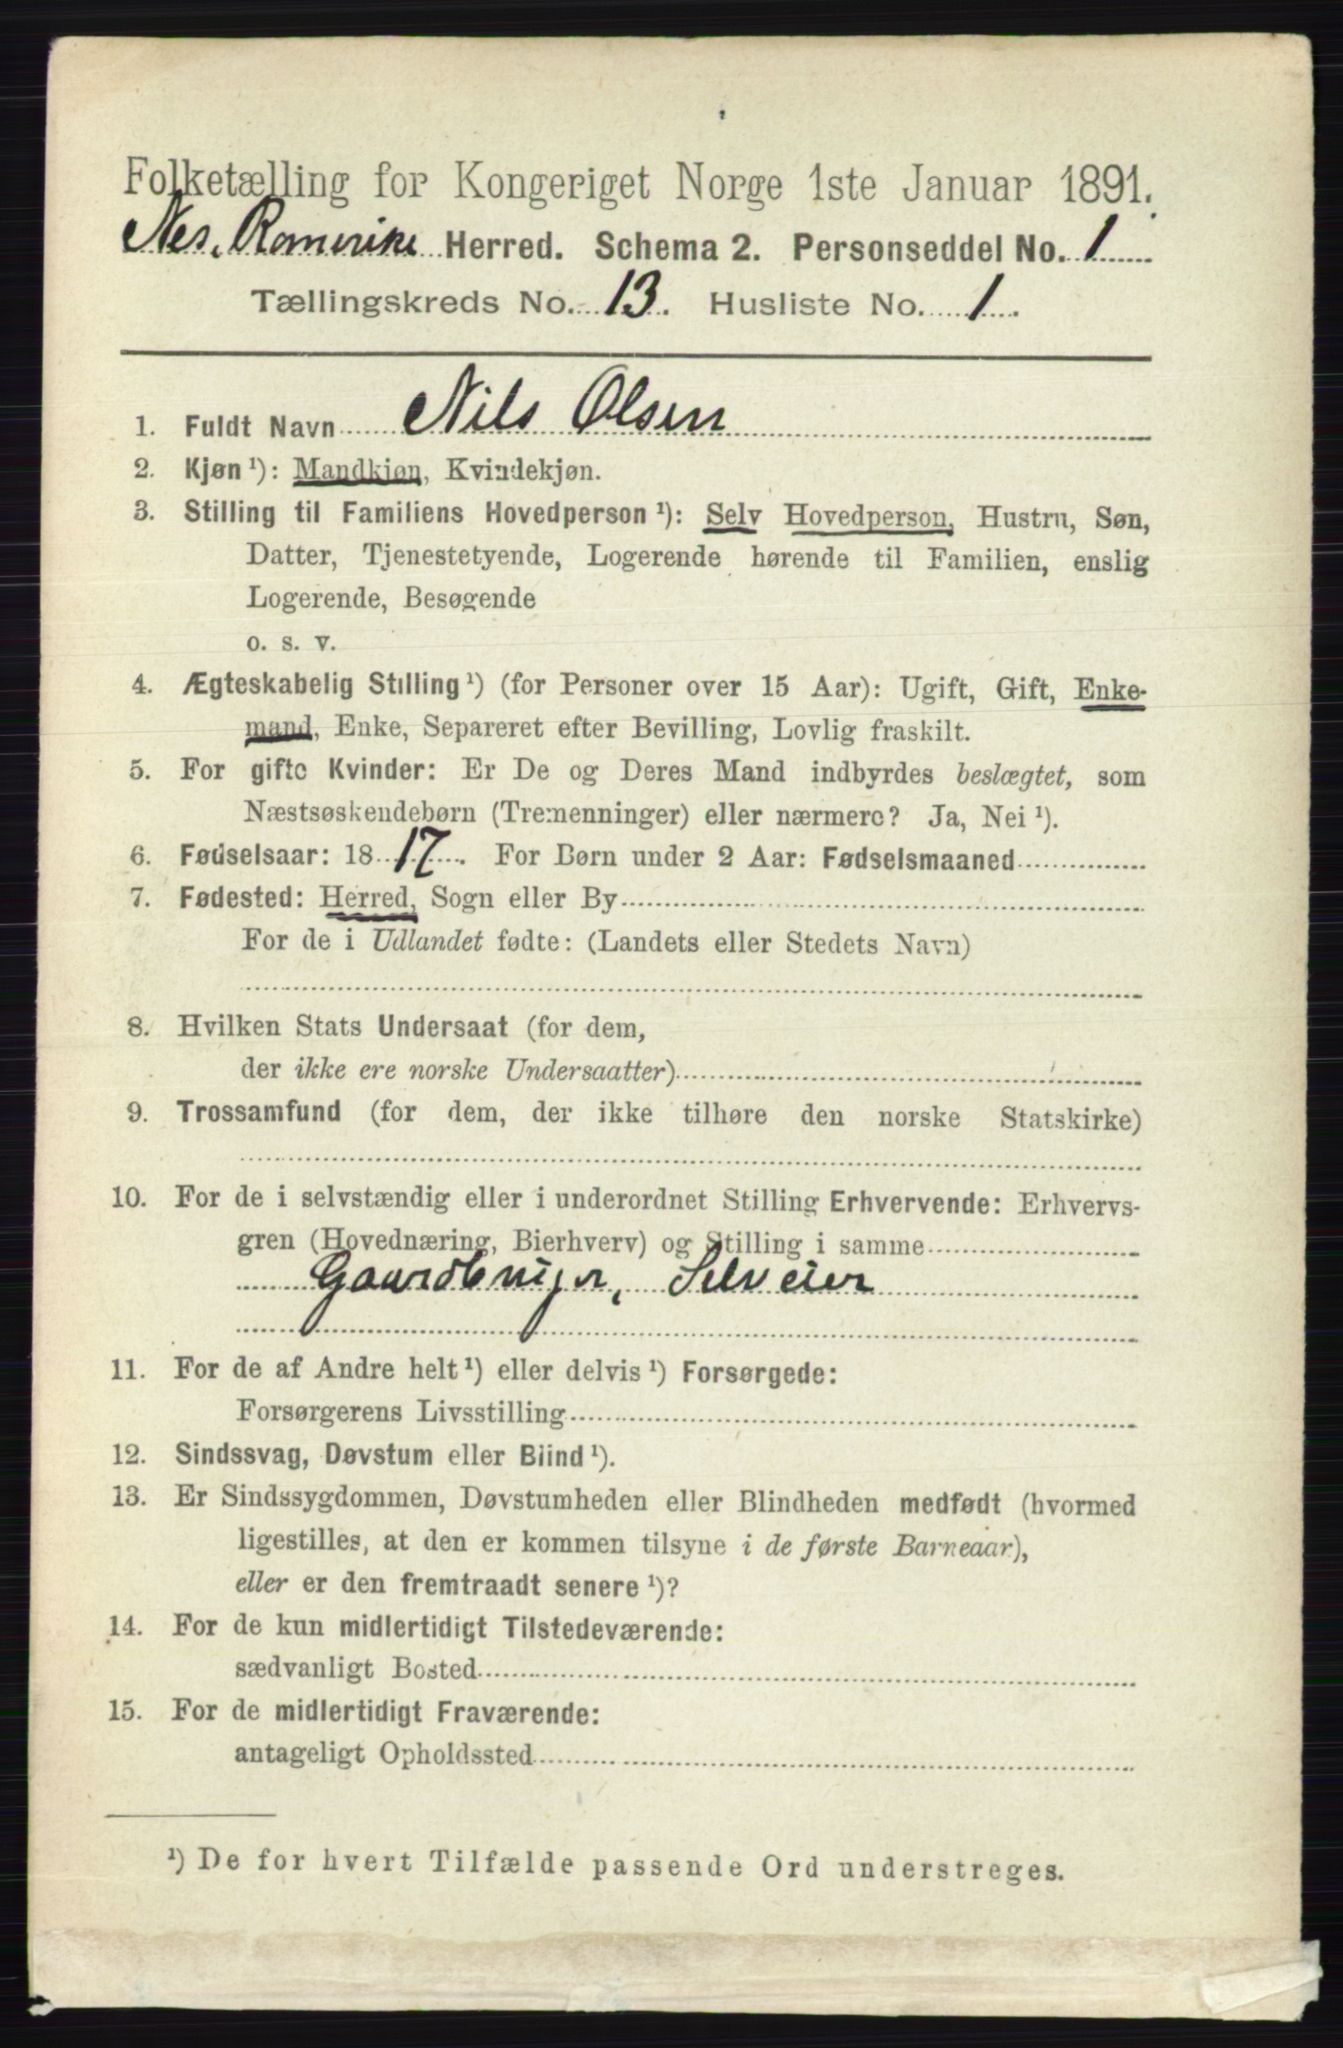 Folketælling for Kongeriget Norge 1ste Januar 1891.
Nes, Romerike Herred. Schema 2. Personseddel No. 1
Tællingskreds No. 13. Husliste No. 1.
1. Fuldt Navn Nils Olsen
2. Kjøn ¹): Mandkjøn, Kvindekjøn.
3. Stilling til Familiens Hovedperson ¹): Selv Hovedperson, Hustru, Søn,
Datter, Tjenestetyende, Logerende hørende til Familien, enslig
Logerende, Besøgende
o. s. v.
4. Ægteskabelig Stilling ¹) (for Personer over 15 Aar): Ugift, Gift, Enke-
mand, Enke, Separeret efter Bevilling, Lovlig fraskilt.
5. For gifte Kvinder: Er De og Deres Mand indbyrdes beslægtet, som
Næstsøskendebørn (Tremenninger) eller nærmere? Ja, Nei ¹).
6. Fødselsaar: 1817. For Børn under 2 Aar: Fødselsmaaned
7. Fødested: Herred, Sogn eller By
For de i Udlandet fødte: (Landets eller Stedets Navn)
8. Hvilken Stats Undersaat (for dem,
der ikke ere norske Undersaatter)
9. Trossamfund (for dem, der ikke tilhøre den norske Statskirke)
10. For de i selvstændig eller i underordnet Stilling Erhvervende: Erhvervs-
gren (Hovednæring, Bierhverv) og Stilling i samme
Gaardbruger, Selveier
11. For de af Andre helt ¹) eller delvis ¹) Forsørgede:
Forsørgerens Livsstilling
12. Sindssvag, Døvstum eller Blind ¹).
13. Er Sindssygdommen, Døvstumheden eller Blindheden medfødt (hvormed
ligestilles, at den er kommen tilsyne i de første Barneaar),
eller er den fremtraadt senere ¹)?
14. For de kun midlertidigt Tilstedeværende:
sædvanligt Bosted
15. For de midlertidigt Fraværende:
antageligt Opholdssted
¹) De for hvert Tilfælde passende Ord understreges.